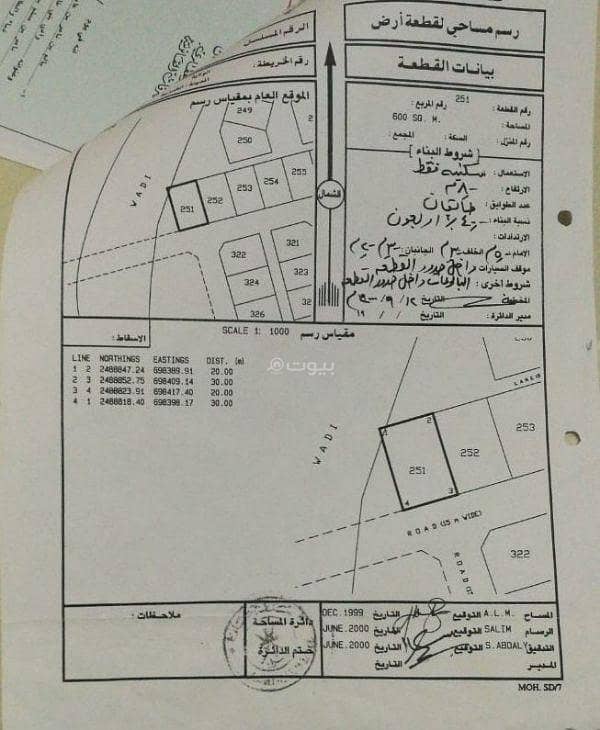 رسم مساحي لقطعة أرض
بيانات القطعة
رقم القطعة : 251 رقم المربع :
المساحة : 600 SQ. M.
رقم المنزل : السكة : المجمع :
شروط البناء
الاستعمال : سكنية فقط
الارتفاع :
عدد الطوابق : طابقان
نسبة البناء : ٤٠٪ اربعون
الارتدادات :
الامام ٥م الخلف ٣م الجانبان
موقف السيارات داخل حدود القطعة
شروط اخرى : البالوعات داخل حدود القطعة
المخطط التاريخ ١٢ / ٩ / ٢٠٠٠م
مدير الدائرة : التاريخ / / ١٩
الرقم المسلسل
رقم الخريطة :
الموقع العام بمقياس رسم
الشمال
249
250
WADI
251
252
253
254
255
321
322
323
324
326
SCALE 1: 1000
مقياس رسم
الاسقاط :
LINE NORTHINGS EASTINGS DIST. (m)
1 2 2488847.24 698389.91 20.00
2 3 2488852.75 698409.14 30.00
3 4 2488823.91 698417.40 20.00
4 1 2488818.40 698398.17 30.00
بيوت
WADI
1
2
3
4
251
252
253
322
ROAD (15 m WIDE)
ROAD
ملاحظات :
دائرة المساحة
ختم الدائرة
المساح A.L.M. التوقيع التاريخ DEC.1999
الرسام SALIM التوقيع التاريخ JUNE.2000
التدقيق S.ABDALY التوقيع التاريخ JUNE.2000
المدير التاريخ
MOH. SD/7